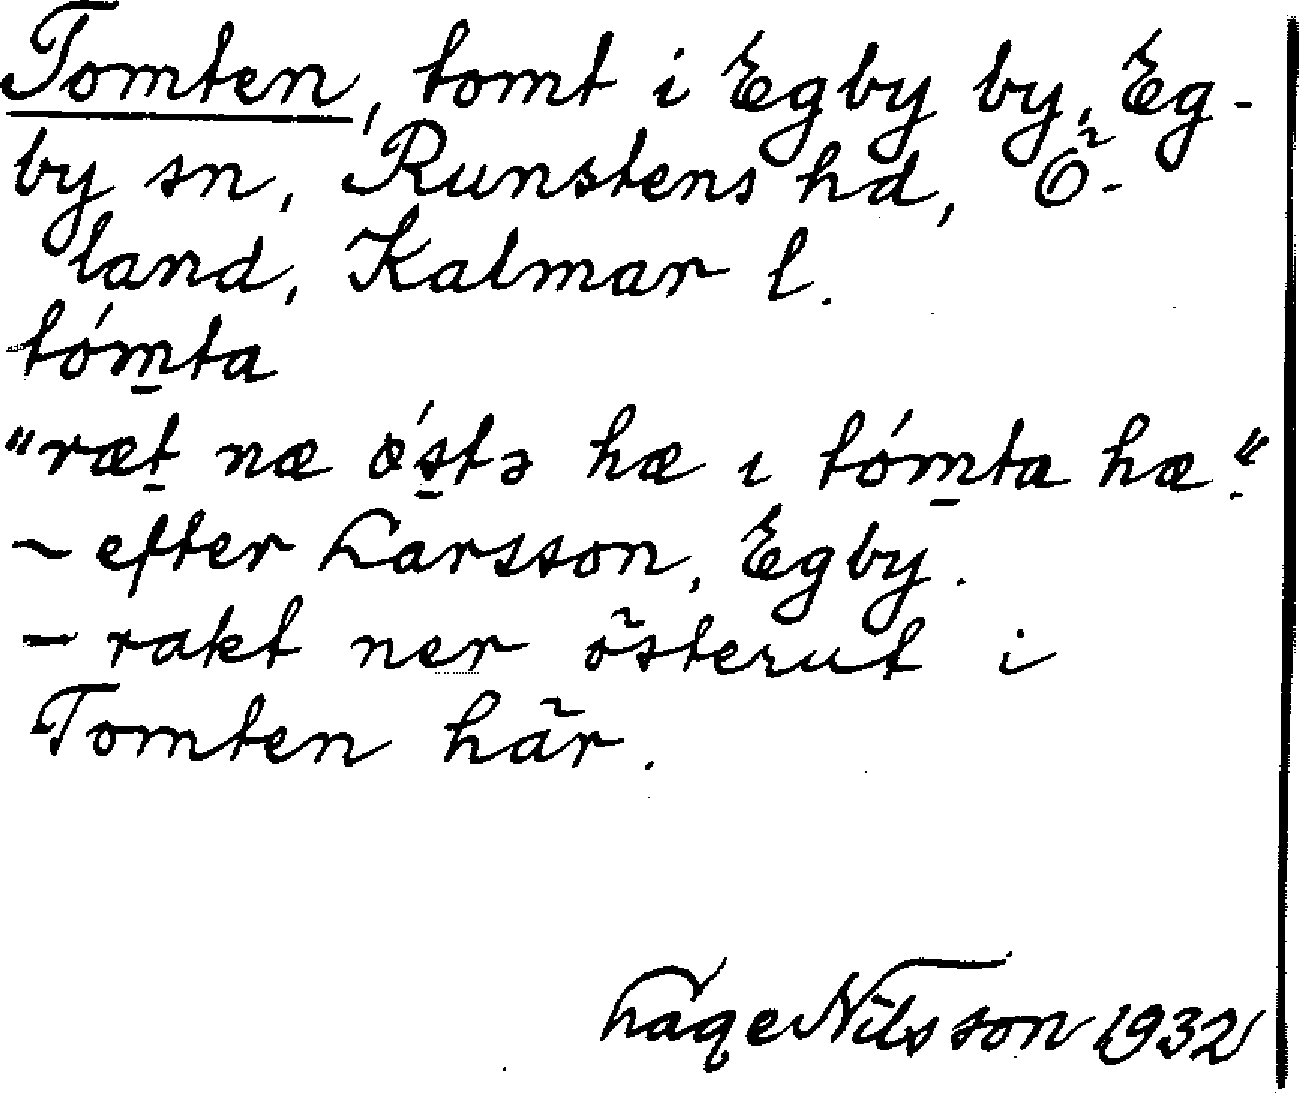 Tomten, tomt i Egby by, Eg-
by sn, Runstens hd, Ö-
land, Kalmar l.
tóm̲ta
"ræt̲ næ ós̲tə hæ ı tóm̲ta hæ."
– efter Larsson, Egby.
– rakt ner österut i
Tomten här.
Låge Nilsson 1932